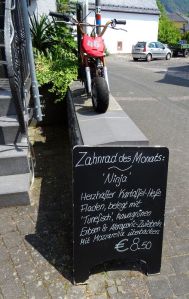 Zahnrad des Monats:
'Ninja'
Herzhafter Kartoffel-Hefe
Fladen, belegt mit
Tunefisch, hausgrünen
Erbsen & Jalapeño-Zwiebeln
Mit Mozzarella überbacken
€ 8.50